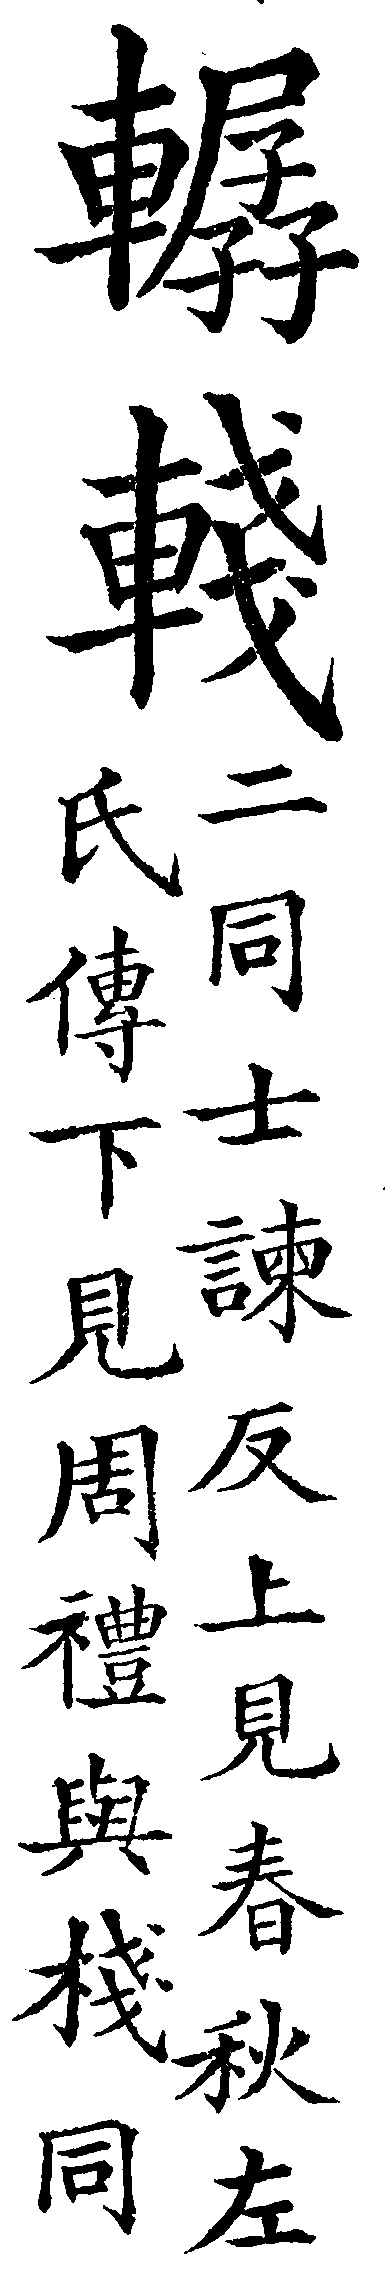 轏
輚
二同士諫反上見春秋左
氏傳下見周禮與棧同